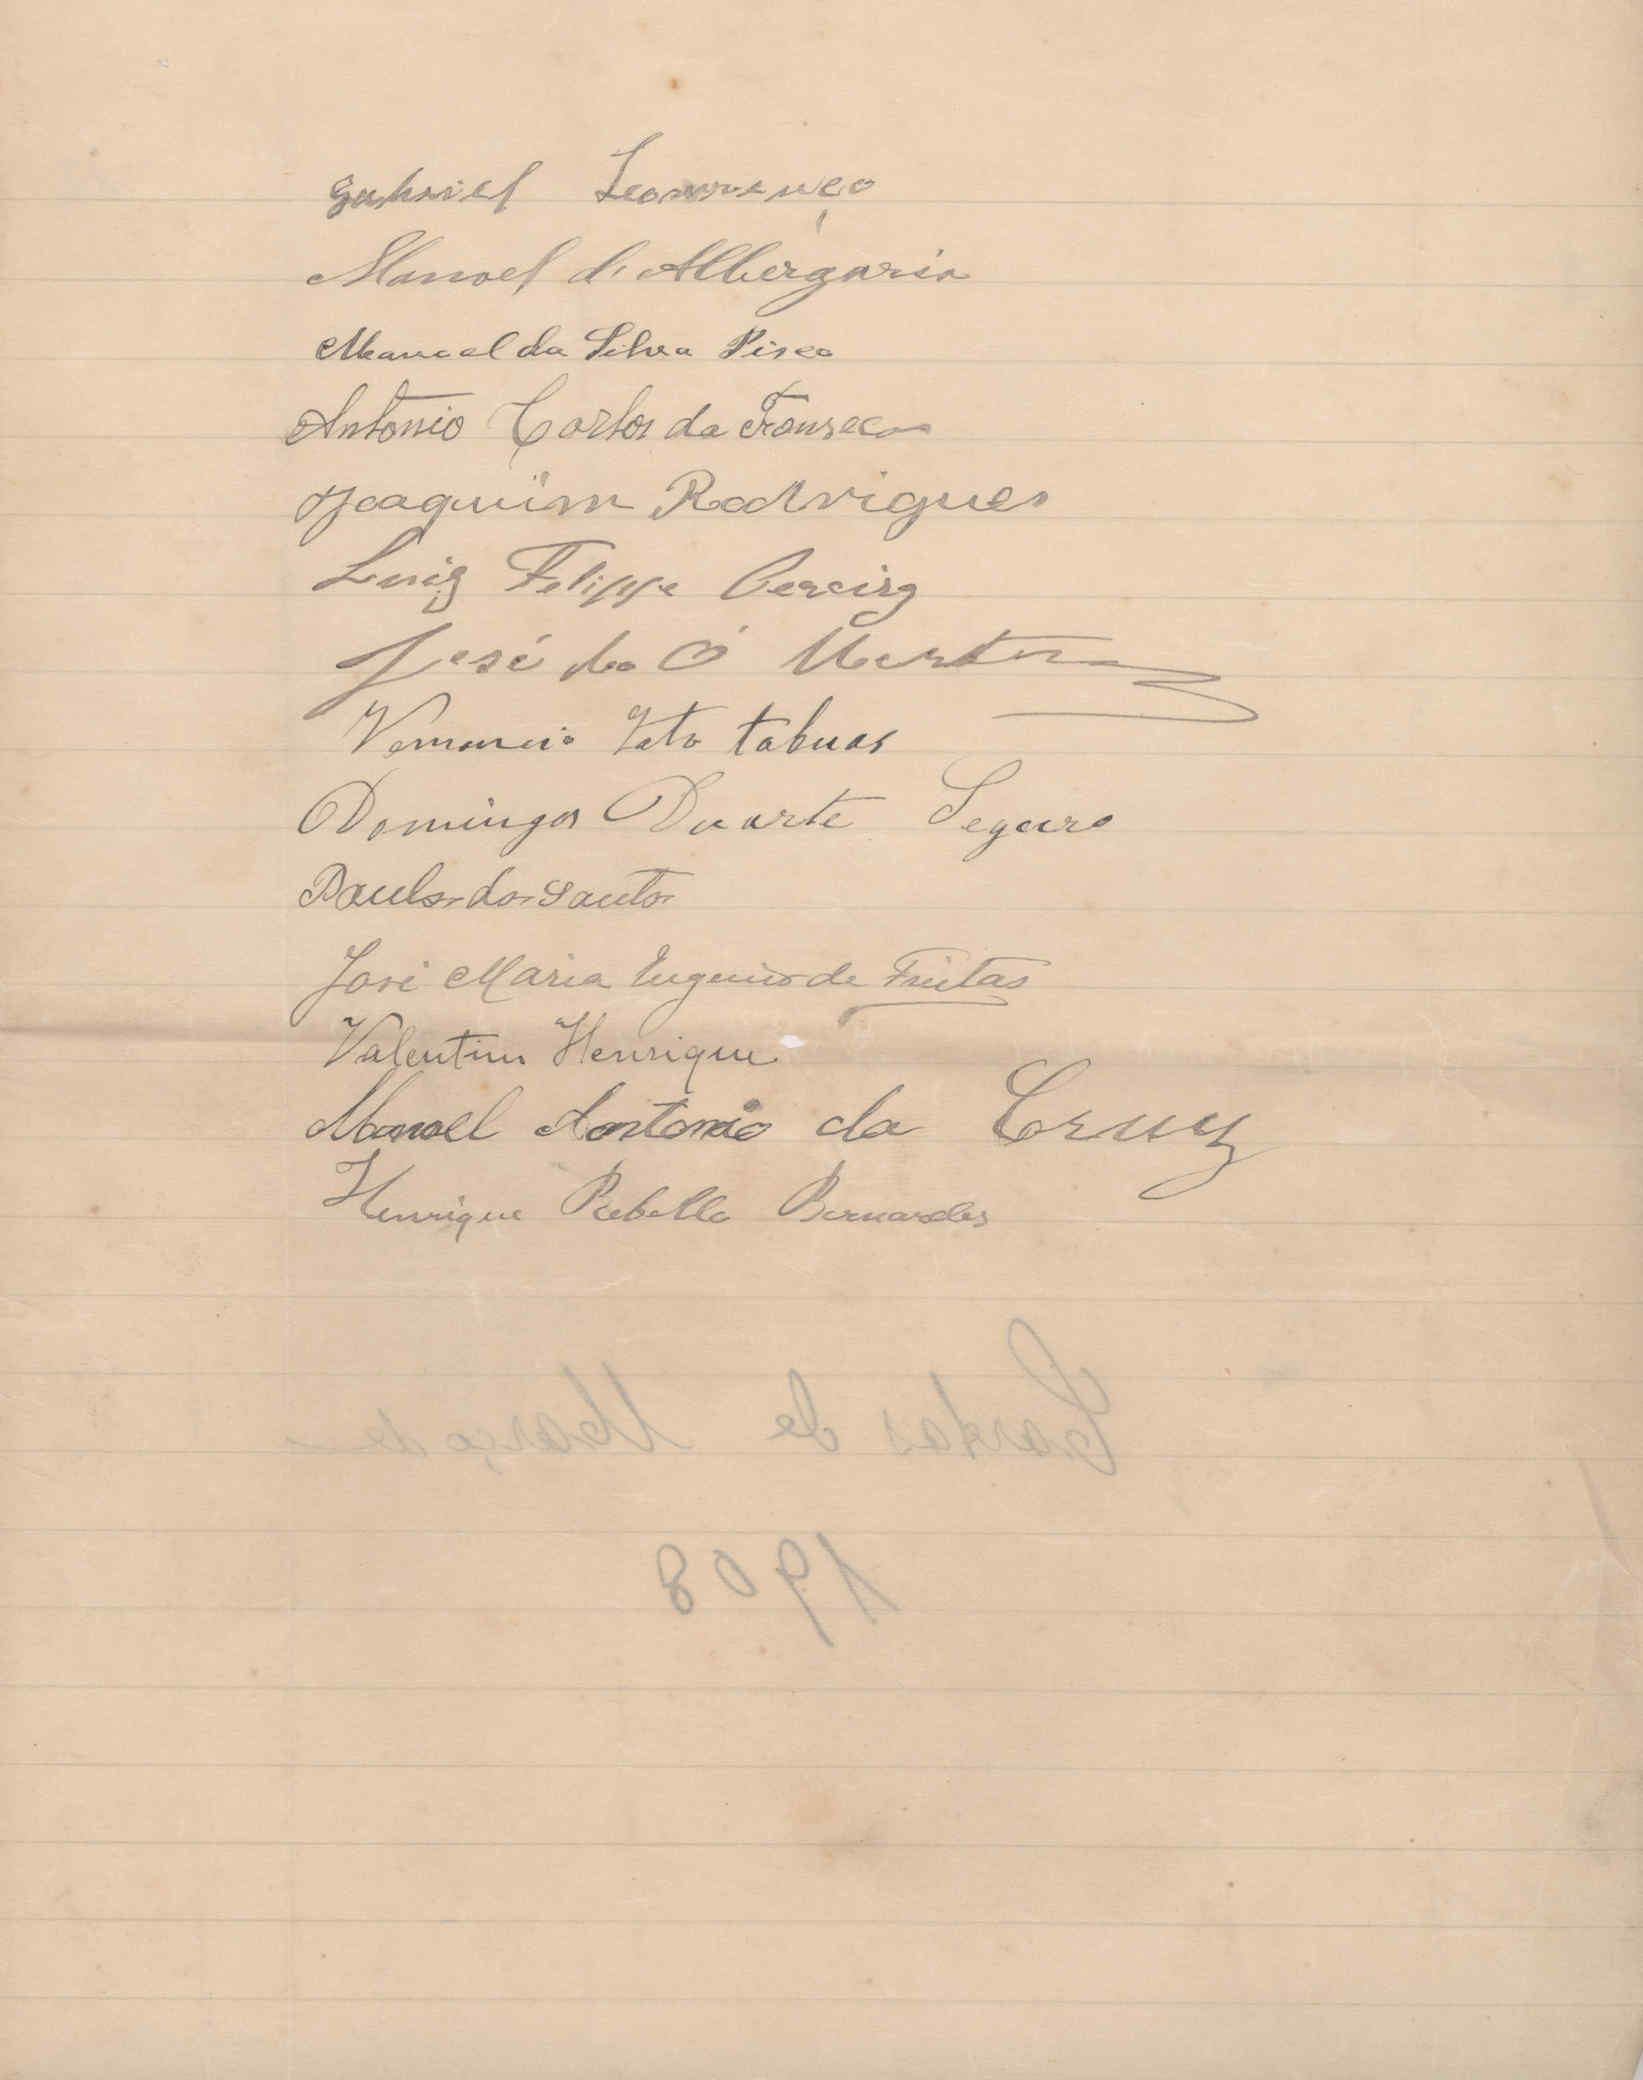 Gabriel Leonrrenço
Manoel d'Albergaria
Manoel da Silva Pisco
Antonio Carlos da Fonseca
Joaquim Rodrigues
Luiz Felippe Pereira
José do Ó Martins
Venancio tabuas
Domingos Duarte Seguro
Paulo dos Santos
José Maria Eugenio de Freitas
Valentim Henrique
Manoel Antonio da Cruz
Henrique Rebello Bernardes
Cartas de Março de
1908